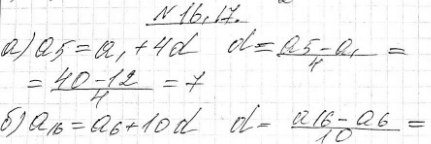 N 16.17.
а) a5 = a1 + 4d   d = (a5 - a1)/4 =
= (40 - 12)/4 = 7
б) a16 = a6 + 10d   d = (a16 - a6)/10 =